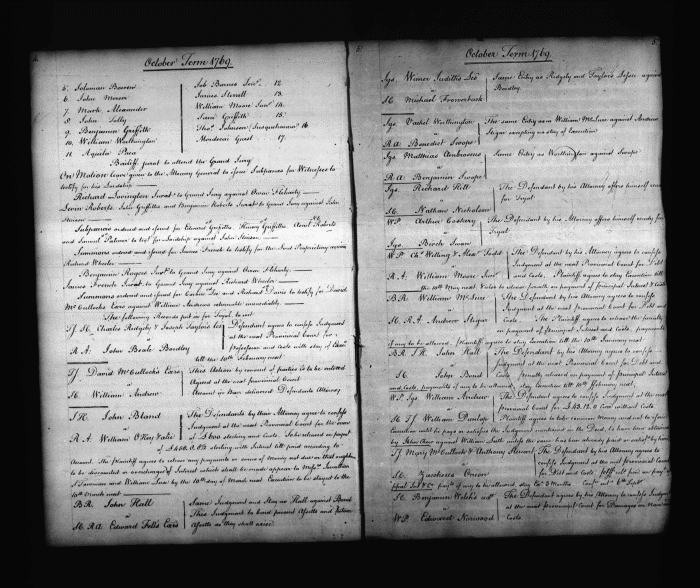 October Term 1769
5. Soloman Bowen
6. John Moson
7. Mark Alexander
8. John Selby
9. Benjamin Griffith
10. William Worthington
11. Aquila Paca
Job Barnes Senr. 12
James Sterett 13.
William Moore Junr. 14.
Saml. Griffith 15.
Thos. Johnson (Susquehanna) 16
Mordecai Gist 17.
Bailiff prest to attend the Grand Jury
On Motion leave given to the Attorney General to issue Subpaenas for Witnesses to
testify for his Lordship
Richard Lovington Swort. to Grand Jury against Owen Flcharty
Levin Roberts, John Griffith and Benjamin Roberts Sworn to Grand Jury against John
Stinson
Subpaenas ordered and issued for Edward Griffith, Henry Griffith, Averl Roberts
and Samuel Palmer to test. for Lordship against John Stinson
Summons ordered and issued for James French to testify for the Lord Proprietary versus
Richard Wheeler
Benjamin Rogers Swort. to Grand Jury against Owen
James French Swort. to Grand Jury against Richard Wheeler
Summons ordered and issued for Corbin Lee and Richard Davis to testify for David
McCullochs Exrs against William Andrews returnable immediately
The following Records put in for Tryal, to wit
TJ St. Charles Ridgely & Joseph Taylors Les
R.A. John Beale Bordley
Defendant agrees to confess Judgment
at the next Provincial Court for
Possession and Costs with stay of
till the 10th. February next
TJ. David McCulloch's Exrs
St. William Andrew
This Action by consent of parties is to be entered
Agreed at the next Provincial Court
Amount in then delivered Defendants Attorney
T.H. John Bland
R.A. William OKey Valie
The Defendants by their Attorney agrees to confess
Judgment at the next Provincial Court for the
£600 sterling and Costs. To be released on payment
of £406.0.8½ sterling with Interest till paid according to
Account. The Plaintiff agrees to release any payments or errors of Money not due or that ought
to be discounted or overcharge of Interest which shall be made appear to Messrs. Jonathan
and William Lux by the 10th day of March next Execution to be stayed to the
10th March next
B.R. John Hall
St. R.A. Edward Fell's Exrs
Same Judgment and Stay as Hall against Bond
This Judgment to bind present Assetts and future
Assetts as they shall arise
October Term 1769
5
Sgs. Winer Judiths Les
St. Michael Fronerbark
Same Entry as Ridgely and Taylors Lessee against
Bordley
Sgs. Vachel Worthington
R.A. Benedict Swope
The same Entry as William McLure against Andrew
Stiger excepting as stay of Execution
Sgs. Matthias Ambrosens
R.A. Benjamin Swope
Same Entry as Worthington against Swope
Sgs. Richard Hill
St. Nathan Nicholson
The Defendant by his Attorney offers himself ready
for Tryal
W.P. Arthur Coskery
Sgs. Beech Swan
The Defendant by his Attorney offers himself ready for
Tryal
W.P. Chs. Willing & Alexr. Todd
R.A. William Moore Senr.
The Defendant by his Attorney agrees to confess
Judgment at the next Provincial Court for Debt
and Costs. Plaintiff agrees to stay Execution till
the 10th. May next to release Penalty on payment of principal Interest & Costs
B.R. William McLure
St. R.A. Andrew Stiger
The Defendant by his Attorney agrees to confess
Judgment at the next Provincial Court for Debt and
Costs. The Plaintiff agrees to release the penalty
on payment of principal Interest and Costs, payments
if any to be allowed. Plaintiff agrees to stay Execution till the 10th. January next
B.R. T.H. John Hall
St. John Bond
The Defendant by his Attorney agrees to confess
Judgment at the next Provincial Court for Debt
and Costs. Penalty released on payment of principal Interest
and Costs, payments if any to be allowed, stay Execution till 10th. February next,
W.P. Sgs. William Andrew
St. TJ William Dunlap
The Defendant agrees to confess Judgment at the next
provincial Court for £43.12.0 Curr with Costs.
Plaintiff agrees to take reason Money and not to issue
Execution until he pays or satisfies the Judgment mentioned in the Deed, to have been obtained
by John Chew against William Suth unless the same has been already paid or satisfied by him
TJ Mary McCulloch & Anthony Stewart
St. Zacheria Onion
The Defendant by his Attorney agrees to
confess Judgment at the next provincial Court
for Debt and Costs.
payt. if any to be allowed, stay Exn. 6 Months
St. Benjamin Welch's
W.P. Edward Norwood
The Defendant by his Attorney agrees to confess Judgment
at the next provincial Court for Damages in
Costs